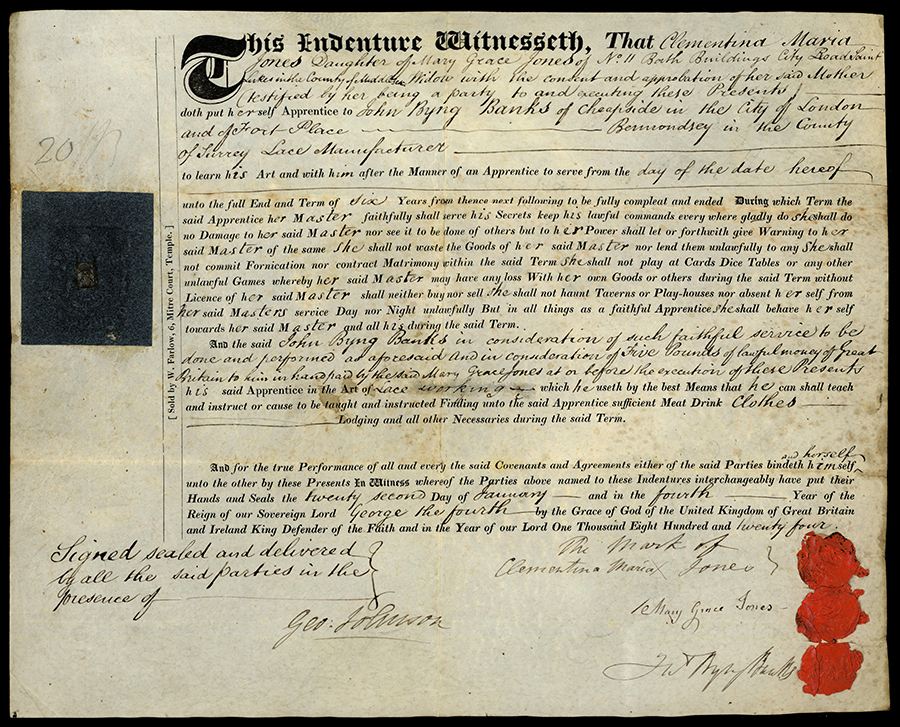 This Indenture Witnesseth, That Clementina Maria
Jones Daughter of Mary Grace Jones of No. 11 Bath Buildings City Road Saint
Lukes in the County of Middx Widow with the consent and approbation of her said Mother
(testified by her being a party to and executing these Presents)
doth put herself Apprentice to John Byng Banks of Cheapside in the City of London
and of Fort Place Bermondsey in the County
of Surrey Lace Manufacturer
to learn his Art and with him after the Manner of an Apprentice to serve from the day of the date hereof
unto the full End and Term of six Years from thence next following to be fully compleat and ended During which Term the
said Apprentice her Master faithfully shall serve his Secrets keep his lawful commands every where gladly do she shall do
no Damage to her said Master nor see it to be done of others but to her Power shall let or forthwith give Warning to her
said Master of the same She shall not waste the Goods of her said Master nor lend them unlawfully to any She shall
not commit Fornication nor contract Matrimony within the said Term She shall not play at Cards Dice Tables or any other
unlawful Games whereby her said Master may have any loss With her own Goods or others during the said Term without
Licence of her said Master shall neither buy nor sell She shall not haunt Taverns or Play-houses nor absent her self from
her said Masters service Day nor Night unlawfully But in all things as a faithful Apprentice she shall behave her self
towards her said Master and all his during the said Term.
And the said John Byng Banks in consideration of such faithful service to be
done and performed as aforesaid And in consideration of Five Pounds of lawful money of Great
Britain to him in hand paid by the said Mary Grace Jones at or before the execution of these Presents
his said Apprentice in the Art of Lace working which he useth by the best Means that he can shall teach
and instruct or cause to be taught and instructed Finding unto the said Apprentice sufficient Meat Drink Clothes
Lodging and all other Necessaries during the said Term.
And for the true Performance of all and every the said Covenants and Agreements either of the said Parties bindeth himself and herself
unto the other by these Presents In Witness whereof the Parties above named to these Indentures interchangeably have put their
Hands and Seals the twenty second Day of January and in the fourth Year of the
Reign of our Sovereign Lord George the fourth by the Grace of God of the United Kingdom of Great Britain
and Ireland King Defender of the Faith and in the Year of our Lord One Thousand Eight Hundred and twenty four.
Signed sealed and delivered
by all the said parties in the
presence of
Geo: Johnson
The Mark of
Clementina Maria X Jones
Mary Grace Jones
Jno Byng Banks
20
[ Sold by W. Farlow, 6, Mitre Court, Temple. ]